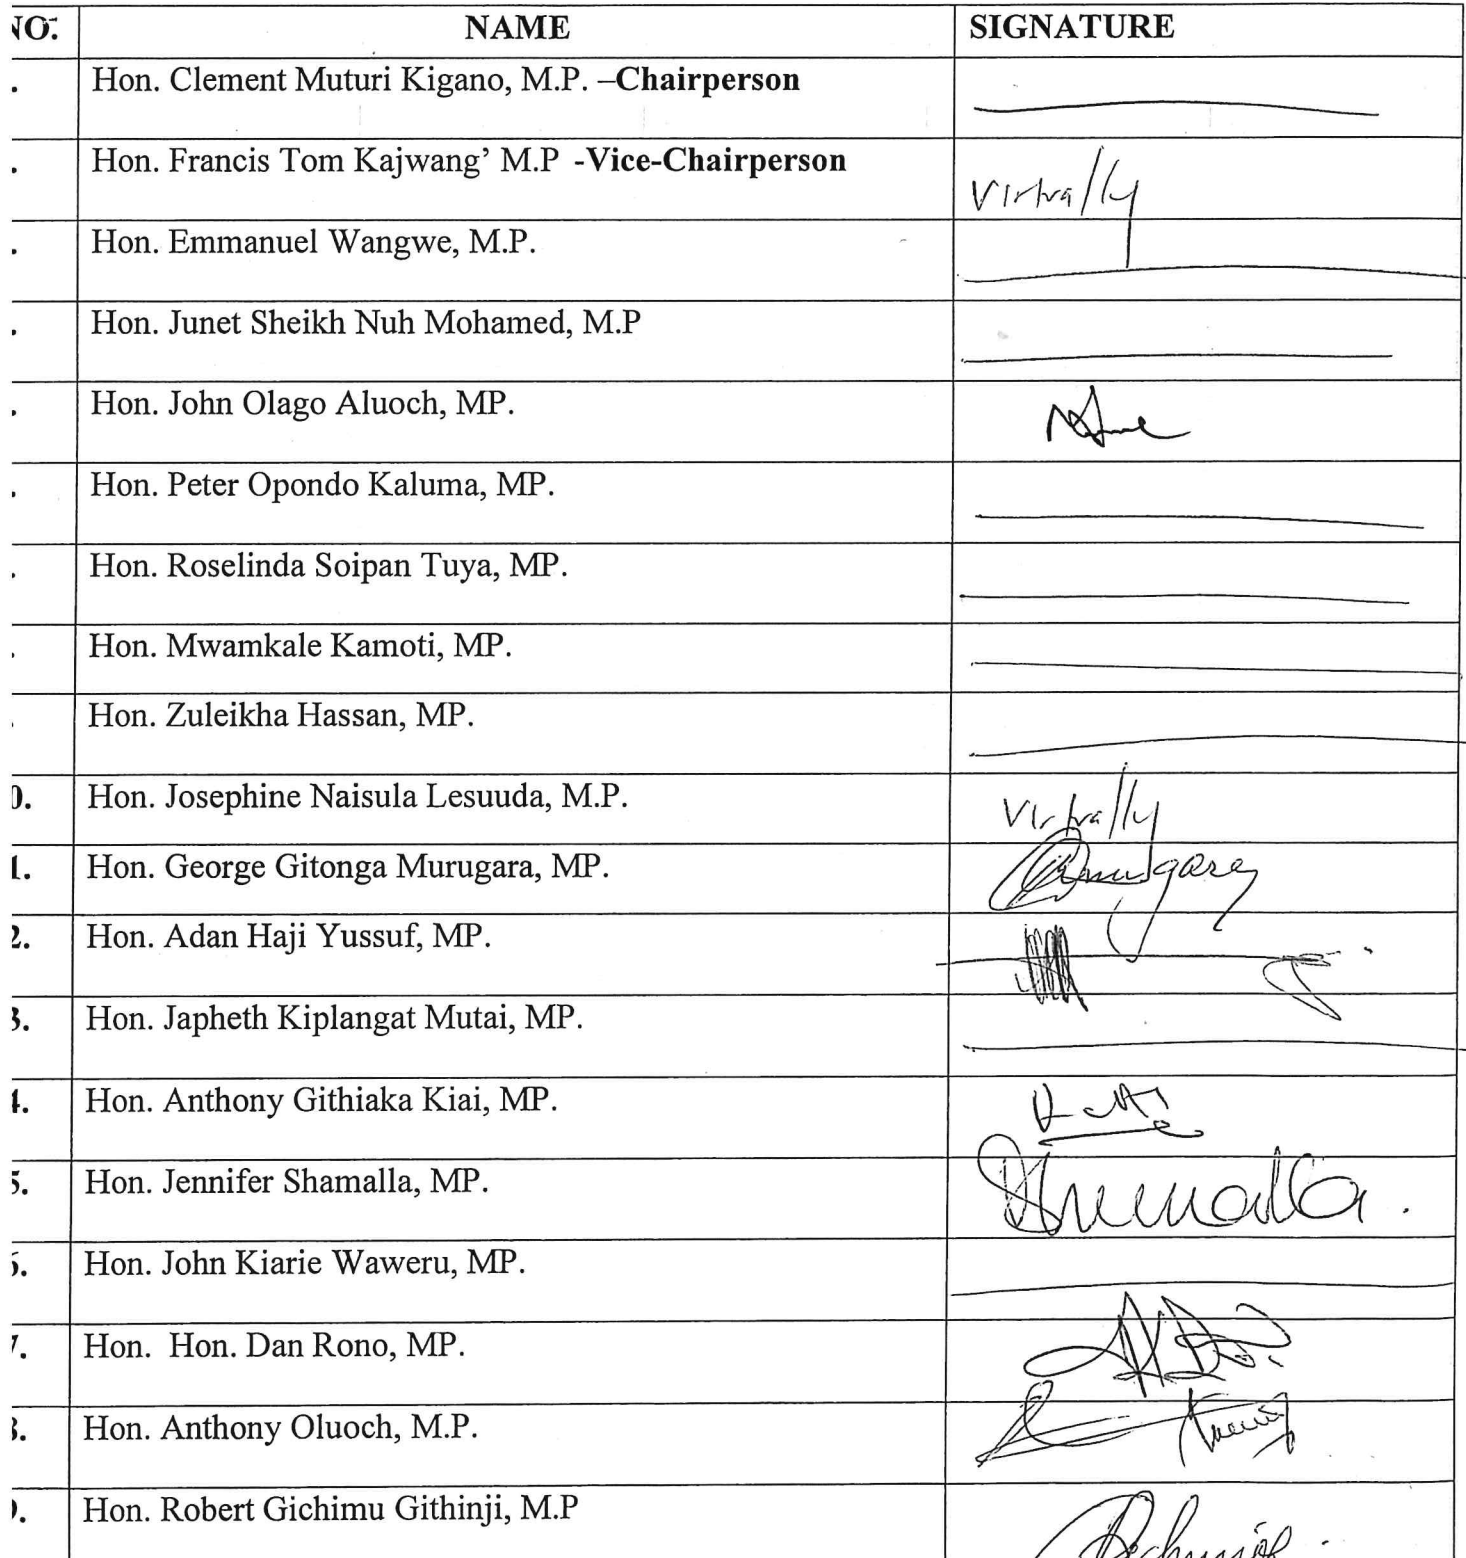 NO. NAME SIGNATURE
. Hon. Clement Muturi Kigano, M.P. –Chairperson
. Hon. Francis Tom Kajwang’ M.P -Vice-Chairperson Virtually
. Hon. Emmanuel Wangwe, M.P.
. Hon. Junet Sheikh Nuh Mohamed, M.P
. Hon. John Olago Aluoch, MP.
. Hon. Peter Opondo Kaluma, MP.
. Hon. Roselinda Soipan Tuya, MP.
. Hon. Mwamkale Kamoti, MP.
. Hon. Zuleikha Hassan, MP.
0. Hon. Josephine Naisula Lesuuda, M.P. Virtually
1. Hon. George Gitonga Murugara, MP.
2. Hon. Adan Haji Yussuf, MP.
3. Hon. Japheth Kiplangat Mutai, MP.
4. Hon. Anthony Githiaka Kiai, MP.
5. Hon. Jennifer Shamalla, MP.
6. Hon. John Kiarie Waweru, MP.
7. Hon. Hon. Dan Rono, MP.
8. Hon. Anthony Oluoch, M.P.
9. Hon. Robert Gichimu Githinji, M.P